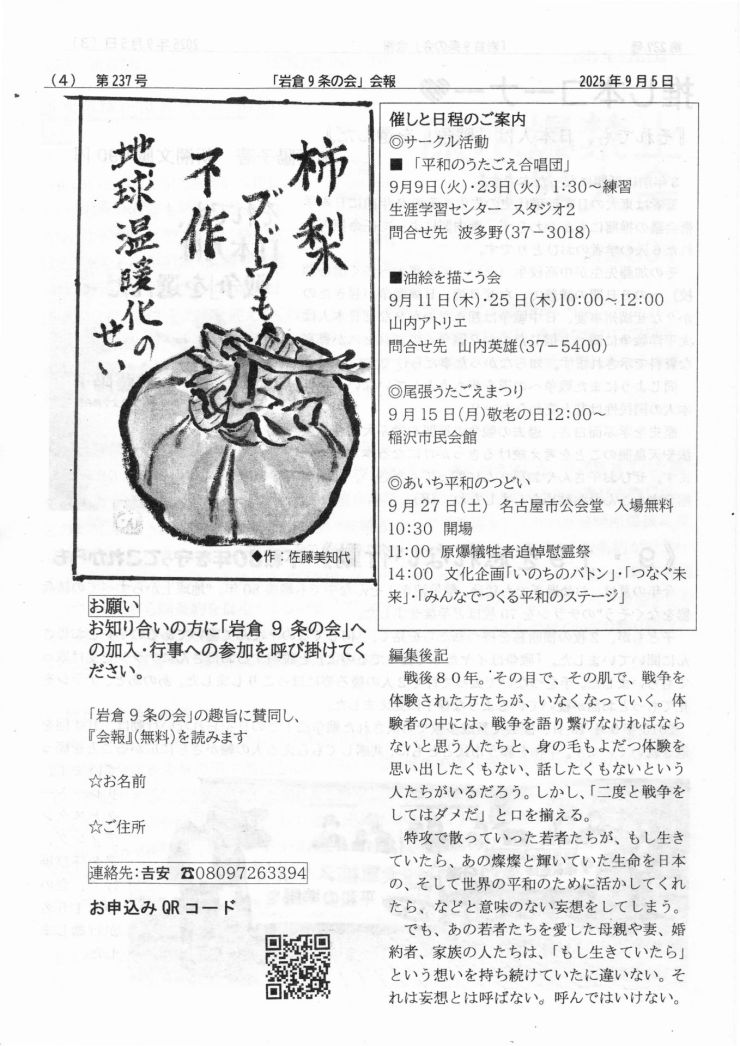 (4) 第237号 「岩倉9条の会」会報 2025年9月5日
柿・梨
ブドウも
不作
地球温暖化の
せい
◆作:佐藤美知代
お願い
お知り合いの方に「岩倉 9 条の会」へ
の加入・行事への参加を呼び掛けてく
ださい。
「岩倉9条の会」の趣旨に賛同し、
『会報』(無料)を読みます
☆お名前
☆ご住所
連絡先:吉安 ☎08097263394
お申込み QR コード
催しと日程のご案内
◎サークル活動
■「平和のうたごえ合唱団」
9月9日(火)・23日(火) 1:30~練習
生涯学習センター スタジオ2
問合せ先 波多野(37-3018)
■油絵を描こう会
9月11日(木)・25日(木)10:00~12:00
山内アトリエ
問合せ先 山内英雄(37-5400)
◎尾張うたごえまつり
9月15日(月)敬老の日12:00~
稲沢市民会館
◎あいち平和のつどい
9月27日(土) 名古屋市公会堂 入場無料
10:30 開場
11:00 原爆犠牲者追悼慰霊祭
14:00 文化企画「いのちのバトン」・「つなぐ未
来」・「みんなでつくる平和のステージ」
編集後記
戦後80年。その目で、その肌で、戦争を
体験された方たちが、いなくなっていく。体
験者の中には、戦争を語り繋げなければなら
ないと思う人たちと、身の毛もよだつ体験を
思い出したくもない、話したくもないという
人たちがいるだろう。しかし、「二度と戦争を
してはダメだ」と口を揃える。
特攻で散っていった若者たちが、もし生き
ていたら、あの燦燦と輝いていた生命を日本
の、そして世界の平和のために活かしてくれ
たら、などと意味のない妄想をしてしまう。
でも、あの若者たちを愛した母親や妻、婚
約者、家族の人たちは、「もし生きていたら」
という想いを持ち続けていたに違いない。そ
れは妄想とは呼ばない。呼んではいけない。